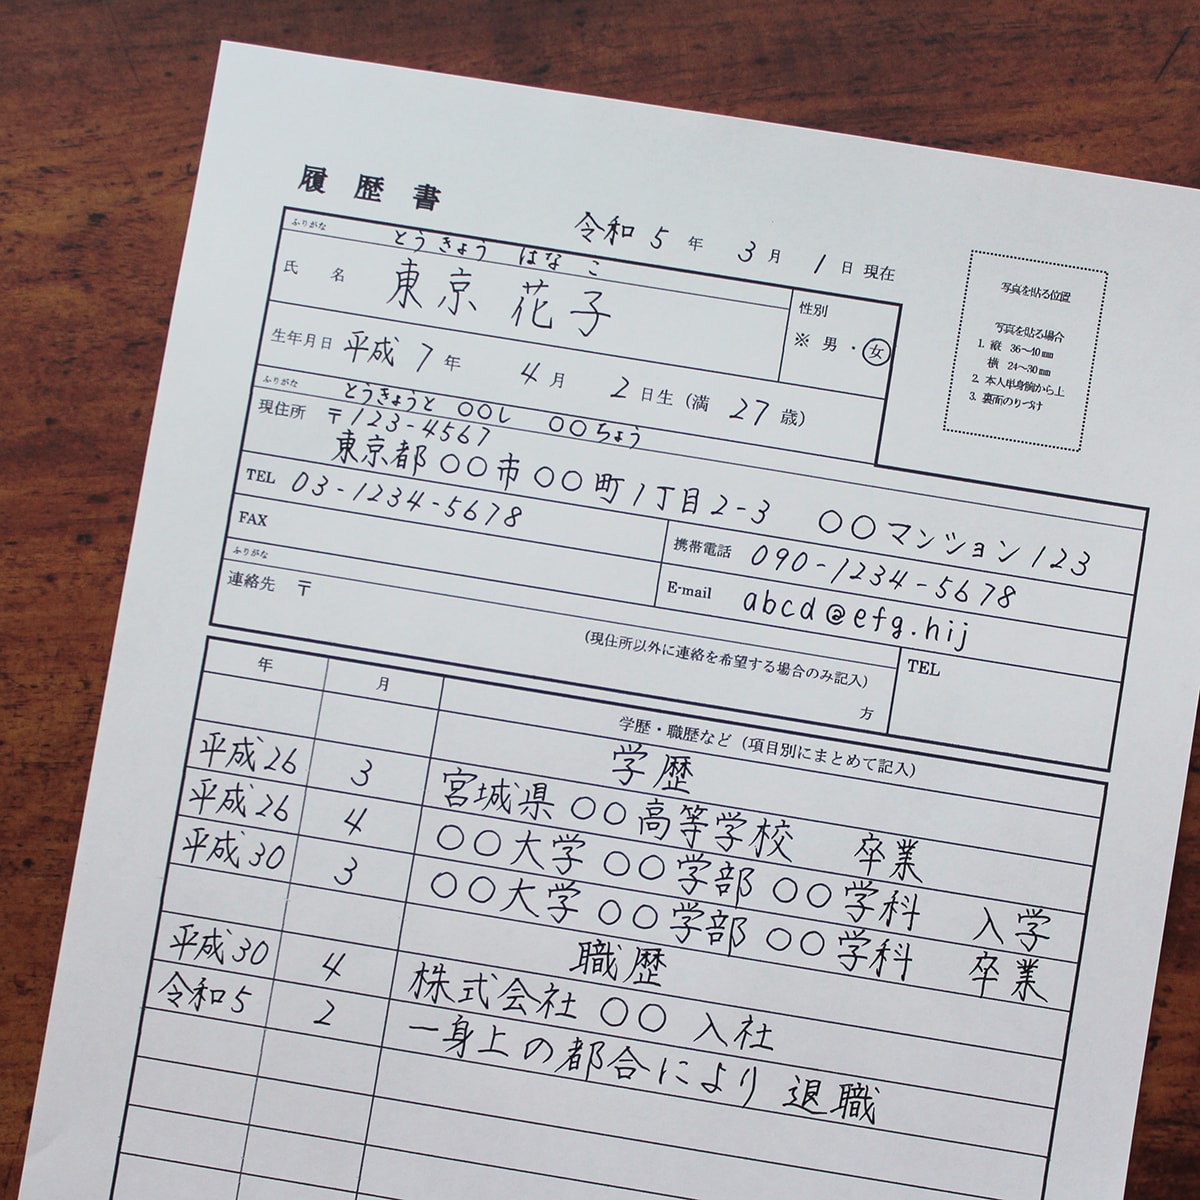 履歴書
令和5年 3月 1日現在
ふりがな とうきょう はなこ
氏名 東京 花子
性別
※ 男・女
生年月日 平成7年 4月 2日生(満 27歳)
写真を貼る位置
写真を貼る場合
1. 縦 36〜40mm
横 24〜30mm
2. 本人単身胸から上
3. 裏面のりづけ
ふりがな とうきょうと 〇〇し 〇〇ちょう
現住所 〒123-4567
東京都〇〇市〇〇町1丁目2-3 〇〇マンション123
TEL 03-1234-5678
携帯電話 090-1234-5678
FAX
E-mail abcd@efg.hij
ふりがな
連絡先 〒
(現住所以外に連絡を希望する場合のみ記入)
方
TEL
年 月 学歴・職歴など(項目別にまとめて記入)
学歴
平成26 3 宮城県〇〇高等学校 卒業
平成26 4 〇〇大学〇〇学部〇〇学科 入学
平成30 3 〇〇大学〇〇学部〇〇学科 卒業
職歴
平成30 4 株式会社〇〇 入社
令和5 2 一身上の都合により退職